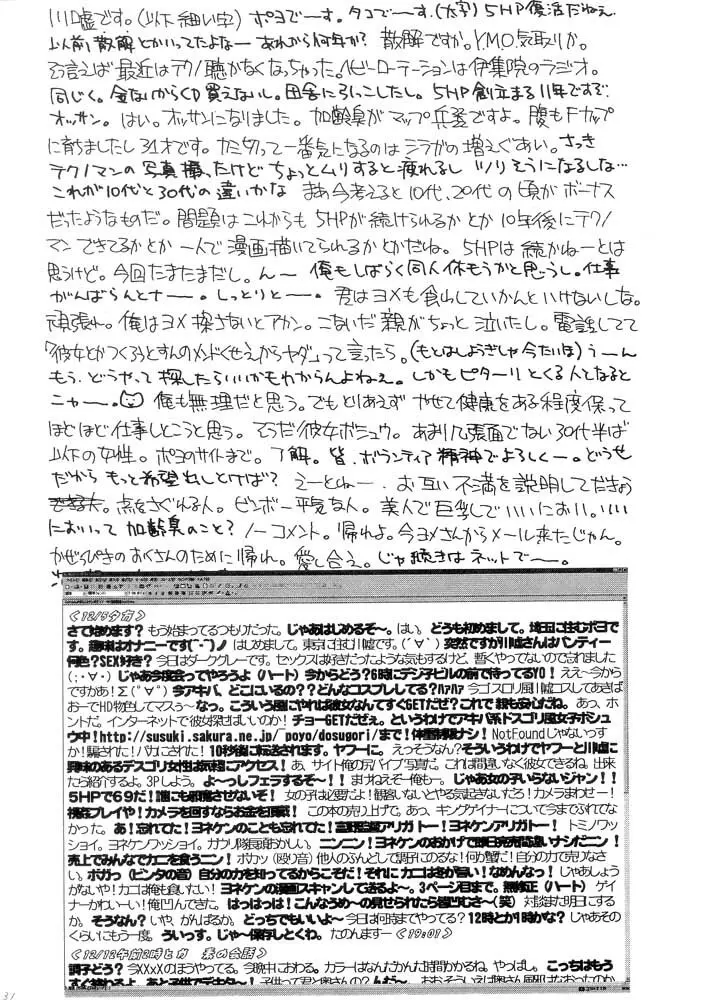 川嘘です。(以下細い字) ポヨでーす。タコでーす。(太字) 5HP復活だねえ
以前、散解とかいってたよなー あれから何年か? 散解ですか。Y.M.O.気取りか。
そう言えば最近はテクノ聴かなくなっちゃった。ヘビーローテーションは伊集院のラジオ。
同じく。金ないからCD買えないし。田舎にひっこしたし。5HP創立まる11年ですぞ
オッサン。はい。オッサンになりました。加齢臭がマップ兵器ですよ。腹もFカップ
に育ちましたし31才です。カミ切って一番気になるのはシラガの増えぐあい。さっき
テクノマンの写真撮ったけどちょっとムリすると疲れるし ツリそうになるしな…
これが10代と30代の違いかな まあ今考えると10代、20代の頃がボーナス
だったようなものだ。問題はこれからも5HPが続けられるかとか10年後にテクノ
マンできてるかとか一人で漫画描いてられるかとかだね。5HPは続かねーとは
思うけど。今回たまたまだし。んー 俺もしばらく同人休もうかと思うし。仕事
がんばらんとナー。しっとりとー。君はヨメも食わしていかんといけないしな。
頑張れ。俺はヨメ探さないとアカン。こないだ親がちょっと泣いたし。電話してて
「彼女とかつくろうとすんのメンドくせえからヤダ」って言ったら。(もとはしようぎしゃ今たいほ) うーん
もう、どうやって探したらいいかもわからんよねえ。しかもピターリとくる人となると
ニャー。俺も無理だと思う。でもとりあえず やせて健康をある程度保って
ほどほど仕事しとこうと思う。そうだ彼女ボシュウ。あまり几張面でない30代半ば
以下の女性。ポヨのサイトまで。了解。皆、ボランティア精神でよろしくー。どうせ
だからもっと希望出しとけば? えーとねー、お互い不満を説明してだきょう
できる人。点をさぐれる人。ビンボー平気な人。美人で巨乳でいいにおい。いい
においって加齢臭のこと? ノーコメント。帰れよ。今ヨメさんからメール来たじゃん。
かぜっぴきのおくさんのために帰れ。愛し合え。じゃ続きはネットでー。
<12/5夕方>
さて始めます? もう始まってるつもりだった。じゃあはじめるぞ~。はい。どうも初めまして。埼玉に住むポヨで
す。趣味はオナニーです(｀ー´)ノ はじめまして。東京に住む川嘘です。(´∀｀) 突然ですが川嘘さんはパンティー
何色?SEX好き? 今日はダークグレーです。セックスは好きだったような気もするけど、暫くやってないので忘れました
(；・∀・) じゃあ今度会ってやろうよ(ハート) 今からどう?6時にデジ子ビルの前で待ってるYO! ええ~今から
ですかあ!Σ(゜∀゜) 今アキバ、どこにいるの??どんなコスプレしてる?ハァハァ 今ゴスロリ風川嘘コスしてあきば
おーでHD物色してマスぅ~なっ。こういう風にやれば彼女なんてすぐGETだぜ?これで親も安心だね。あっ、ホ
ントだ。インターネットで彼女探せばいいのか! チョーGETだぜぇ。というわけでアキバ系ドスゴリ風女子ボシュ
ウ中!http://susuki.sakura.ne.jp/~poyo/dosugori/まで!体重制限ナシ! NotFoundじゃないっす
か!騙された!バカにされた! 10秒後に転送されます。ヤフーに。えっそうなん?そういうわけでヤフーと川嘘に
興味のあるデスゴリ女性は気軽にアクセス! あ、サイト俺の尻バイブ写真だ。これは間違いなく彼女できるね。出来
たら紹介するよ。3Pしよう。よ~っしフェラするぞ~!! まずねえぞ~俺も~。じゃあ女の子いらないジャン!!
5HPで69だ!誰にも邪魔させないぞ! 女の子は必要だよ!観客いないとやる気起きないだろ!カメラまわせー!
視姦プレイや!カメラを回すならお金を頂戴! この本の売り上げで。あっ、キングゲイナーについて今までふれてな
かった。あ!忘れてた!ヨネケンのことも忘れてた!富野監督アリガトー!ヨネケンアリガトー! トミノワッ
ショイ。ヨネケンワッショイ。カナリ隊長恥ずかしい。ニンニン!ヨネケンのおかげで即日完売間違いナシだニン!
売上でみんなでカニを食うニン! ボカッ(殴り音) 他人のふんどしで調子にのるな!何が蟹だ!自分の力で売りなさ
い。ボガっ(ピンタの音) 自分の力を知ってるからこそだ!それにカニは冬が旨い!なめんなっ! じゃあしょう
がないや!カニは俺も食いたい! ヨネケンの漫画スキャンして送るよ~。3ページ目まで。無修正(ハート) ゲイ
ナーかわいーい!俺凹んできた。はっはっは!こんなうめ~の見せられたら皆凹むさ~(笑) 対談まだ明日にする
か。そうなん? いや、がんばるか。どっちでもいいよ~ 今日は何時までやってる? 12時とか1時かな? じゃあその
くらいにもう一度。ういっす。じゃ~保存しとくわ。たのんます― <19:01>
<12/12午前2時ヒカ 素の会話>
調子どう? 今XXxXのほうやってる。今晩中におわる。カラーはなんだかんだ時間かかるね。やっぱし。こっちはもう
31